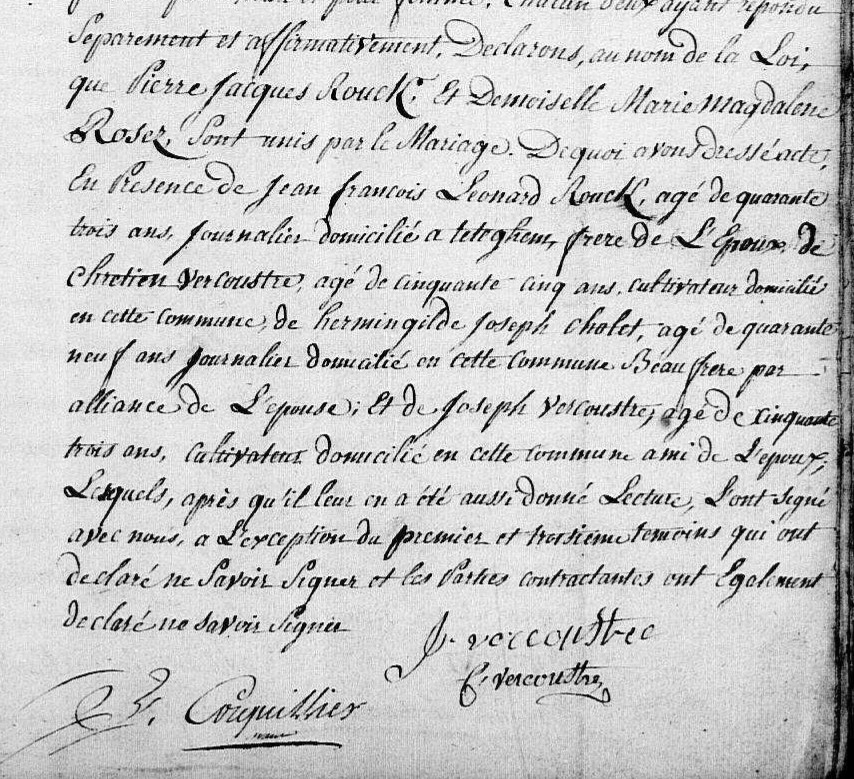 pour femme, Chacun d'eux ayant repondu
Separement et affirmativement, Declarons, au nom de la Loi,
que Pierre Jacques Rouck, Et Demoiselle Marie Magdalene
Rosez, Sont unis par le Mariage. De quoi avons dressé acte,
En Presence de Jean françois Leonard Rouck, agé de quarante
trois ans, Journalier domicilié a teteghem, frere de L'Epoux, de
Chretien Vercoustre, agé de cinquante cinq ans, cultivateur domicilié
en cette commune, de hermingilde Joseph Cholet, agé de quarante
neuf ans Journalier domicilié en cette Commune Beau frere par
alliance de L'epouse; Et de Joseph Vercoustre, agé de cinquante
trois ans, Cultivateur domicilié en cette commune ami de L'epoux,
Lesquels, après qu'il leur en a été aussi donné Lecture, L'ont signé
avec nous, a L'exception du premier et troisieme temoins qui ont
declaré ne Savoir Signer et les Parties contractantes ont Egalement
declaré ne savoir Signer
J. vercoustre
C. vercoustre
Couquillier